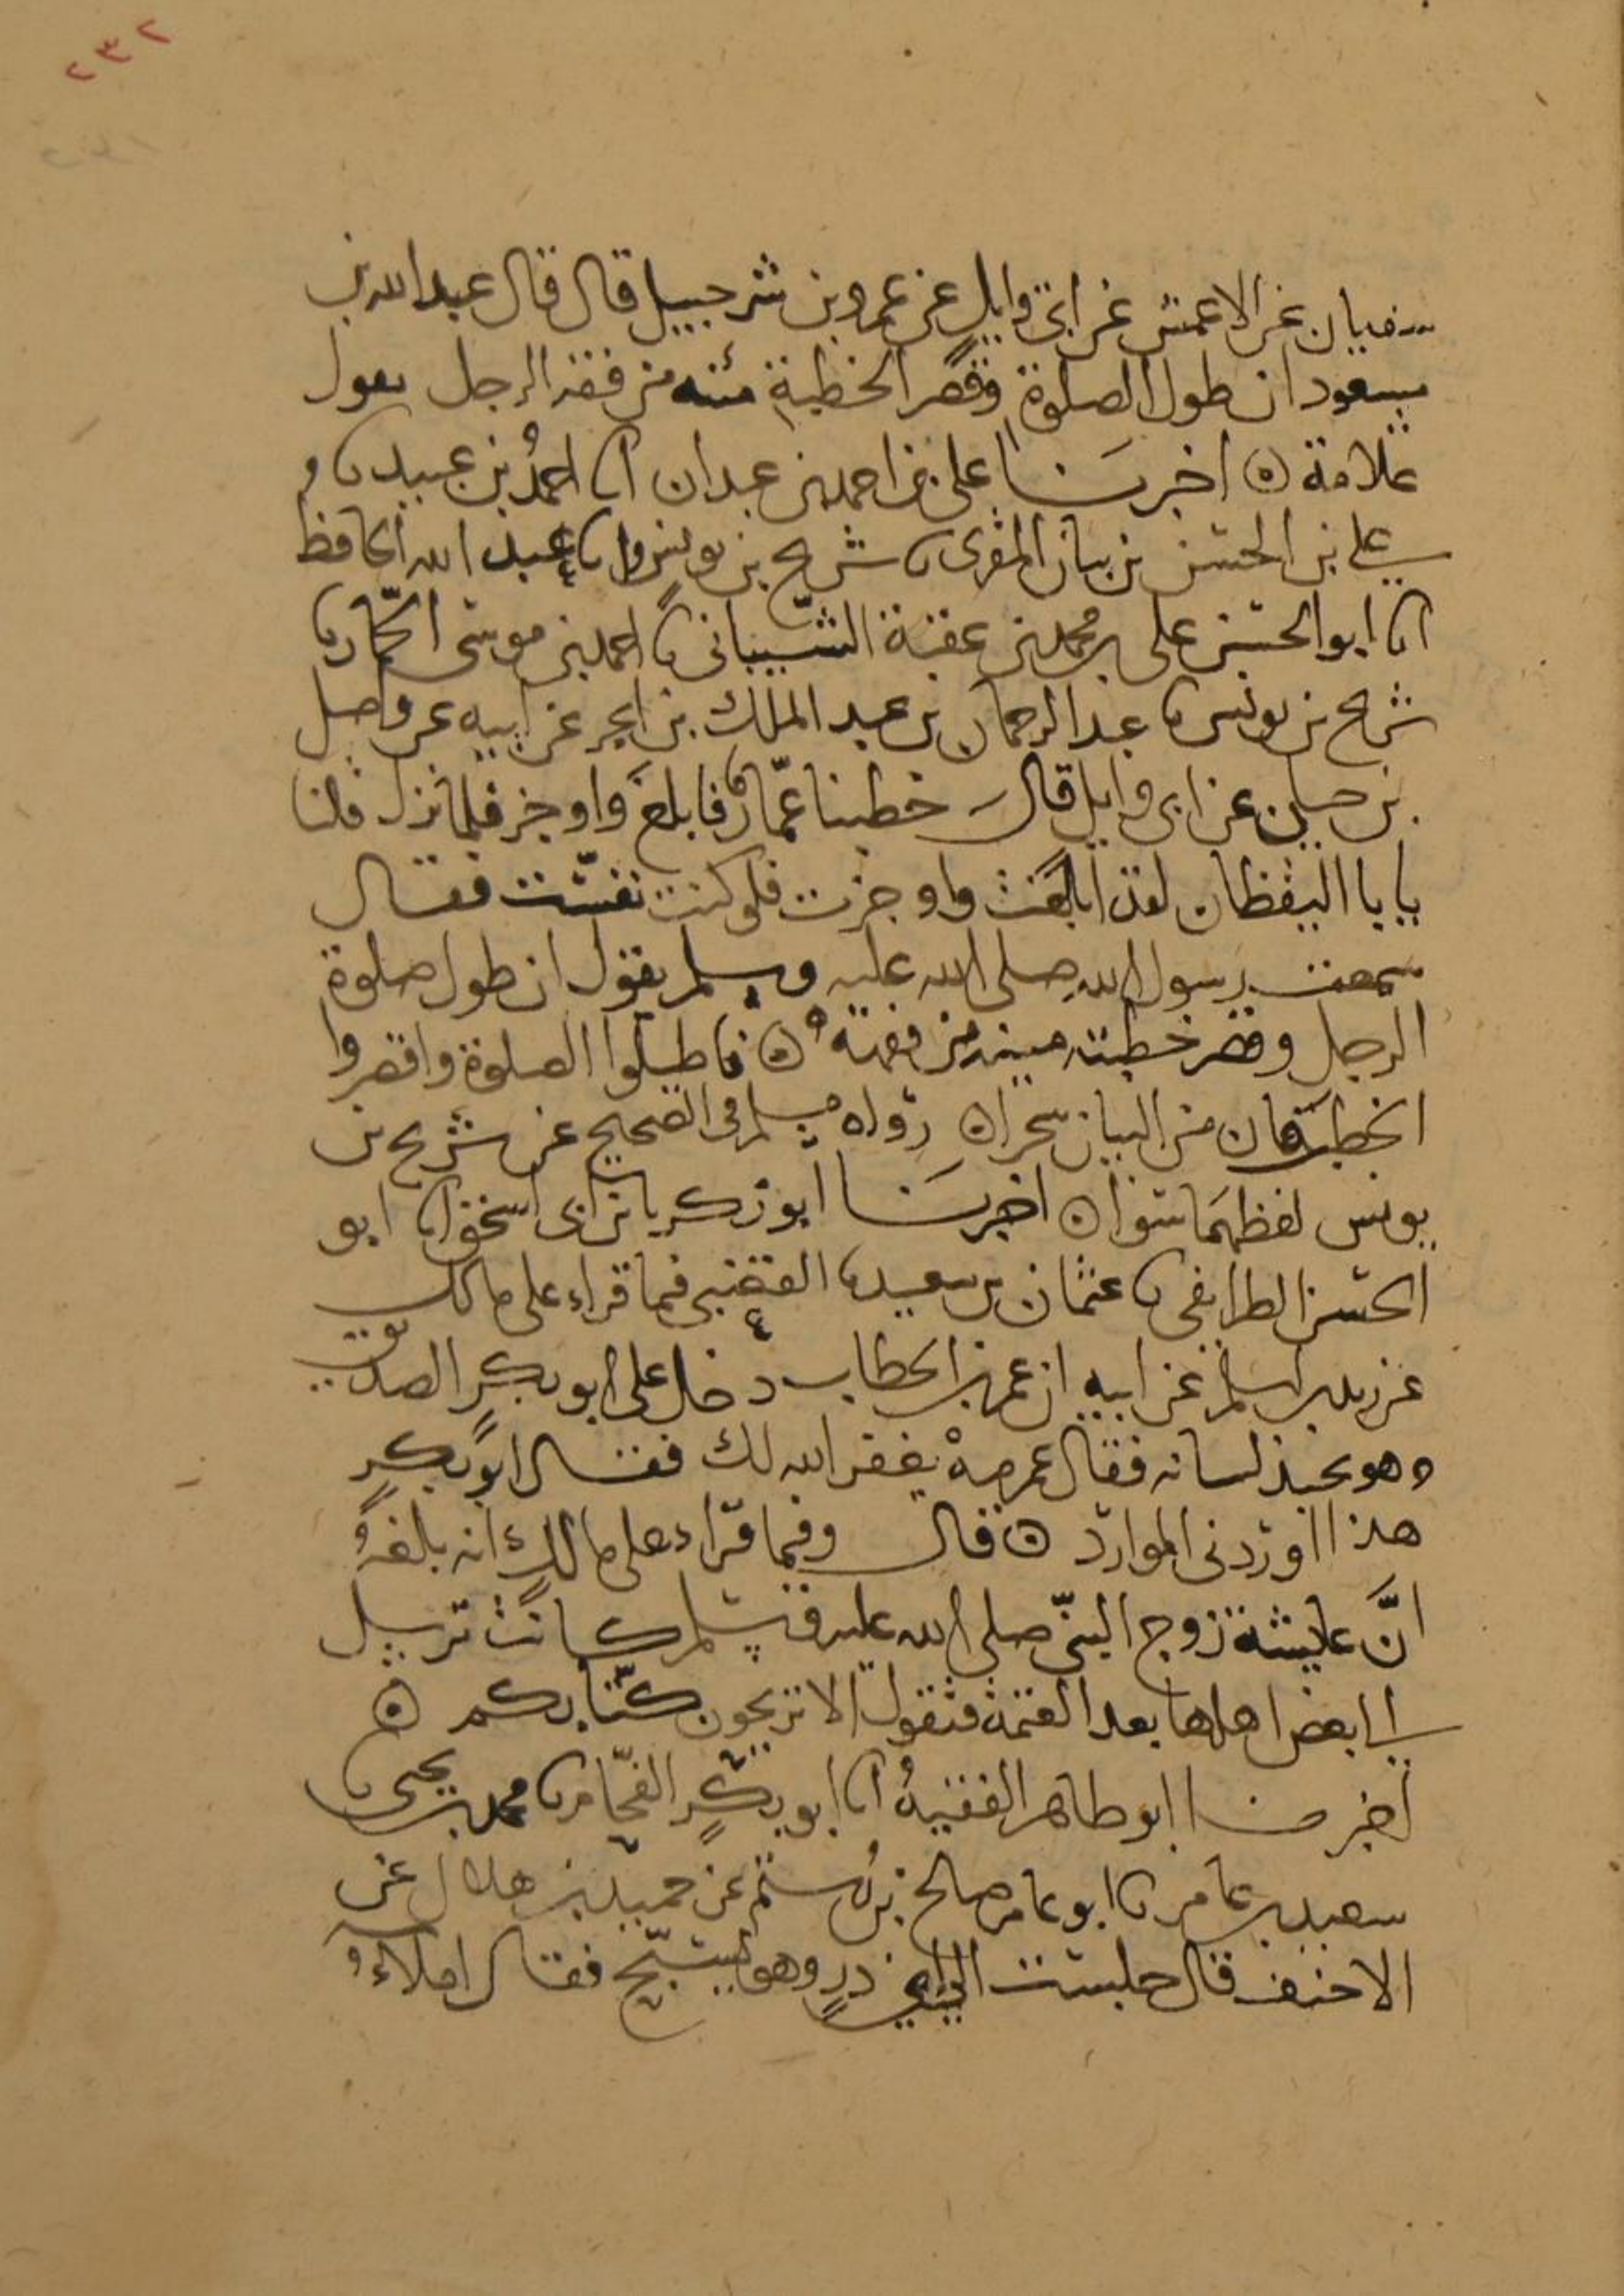 ٢٣٢
سفيان عن الاعمش عن ابى وايل عن عمرو بن شرحبيل قال قال عبد الله بن
مسعود ان طول الصلوة وقصر الخطبة مئنه من فقه الرجل يقول
علامة ه اخبرنا على بن احمد بن عبدان انا احمد بن عبيد نا
على بن الحسن بن بيان المقرى نا شريح بن يونس وانا عبد الله الحافظ
انا ابو الحسن على بن محمد بن عقبة الشيبانى نا احمد بن موسى الحمار نا
شريح بن يونس نا عبد الرحمان بن عبد الملك بن ابجر عن ابيه عن واصل
بن حيان عن ابى وايل قال خطبنا عمّار فابلغ واوجز فلما نزل قلنا
يا با اليقظان لقد ابلغت واوجزت فلو كنت نفست فقال
سمعت رسول الله صلى الله عليه وسلم يقول ان طول صلوة
الرجل وقصر خطبته مينه من فقهه ه فاطيلوا الصلوة واقصروا
الخطبة فان من البيان سحرا ه رواه مسلم فى الصحيح عن شريح بن
يونس لفظهما سوا ه اخبرنا ابو زكريا بن ابى اسحق انا ابو
الحسن الطرايفى نا عثمان بن سعيد نا القعنبى فيما قراء على مالك
عن زيد بن اسلم عن ابيه ان عمر بن الخطاب دخل على ابو بكر الصديق
وهو يجبذ لسانه فقال عمر مهْ يغفر الله لك فقال ابو بكرٍ
هذا اوردنى الموارد ه قال وفيما قراء على مالك انه بلغه
انَّ عايشة زوج النبىّ صلى الله عليه وسلم كانت ترسل
الى بعض اهلها بعد العتمة فتقول الا تريحون كتّابكم ه
اخبرنا ابو طاهر الفقيهُ انا ابو بكرٍ الفحّام نا محمد بن يحيى نا
سعيد بن عامر نا ابو عامر صالح بن رُستم عن حميد بن هلال عن
الاحنف قال جلست الى ابى ذرٍ وهو يسبّح فقال املاء